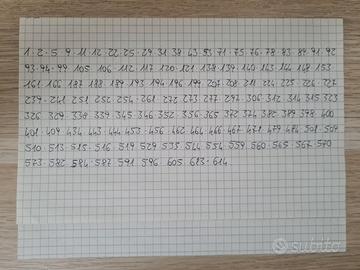 1 · 2 · 5 9 · 11 · 12 · 22 · 25 · 29 · 31 38 · 43 · 53 · 71 · 75 · 76 · 78 · 83 · 84 · 91 · 92
93 · 94 · 99 105 · 106 · 112 · 117 · 120 · 121 · 138 · 139 · 140 · 143 · 144 · 148 · 153
161 · 166 · 187 · 188 · 189 · 193 · 194 · 196 · 199 · 207 · 208 · 218 · 224 · 225 · 226 · 227
239 · 241 · 251 · 252 · 254 · 261 · 272 · 273 · 277 · 297 · 306 · 312 · 314 · 315 · 323
326 · 329 · 338 · 339 · 345 · 346 · 352 · 356 · 365 · 372 · 374 · 382 · 389 · 398 · 400
401 · 409 · 434 · 443 · 444 · 453 · 456 · 462 · 464 · 466 · 467 · 471 · 479 · 484 · 501 · 504
510 · 513 · 515 · 516 · 519 · 529 · 535 · 544 · 554 · 559 · 560 · 565 · 567 · 570
573 · 582 · 584 · 587 · 591 · 596 · 605 · 613 · 614
subito